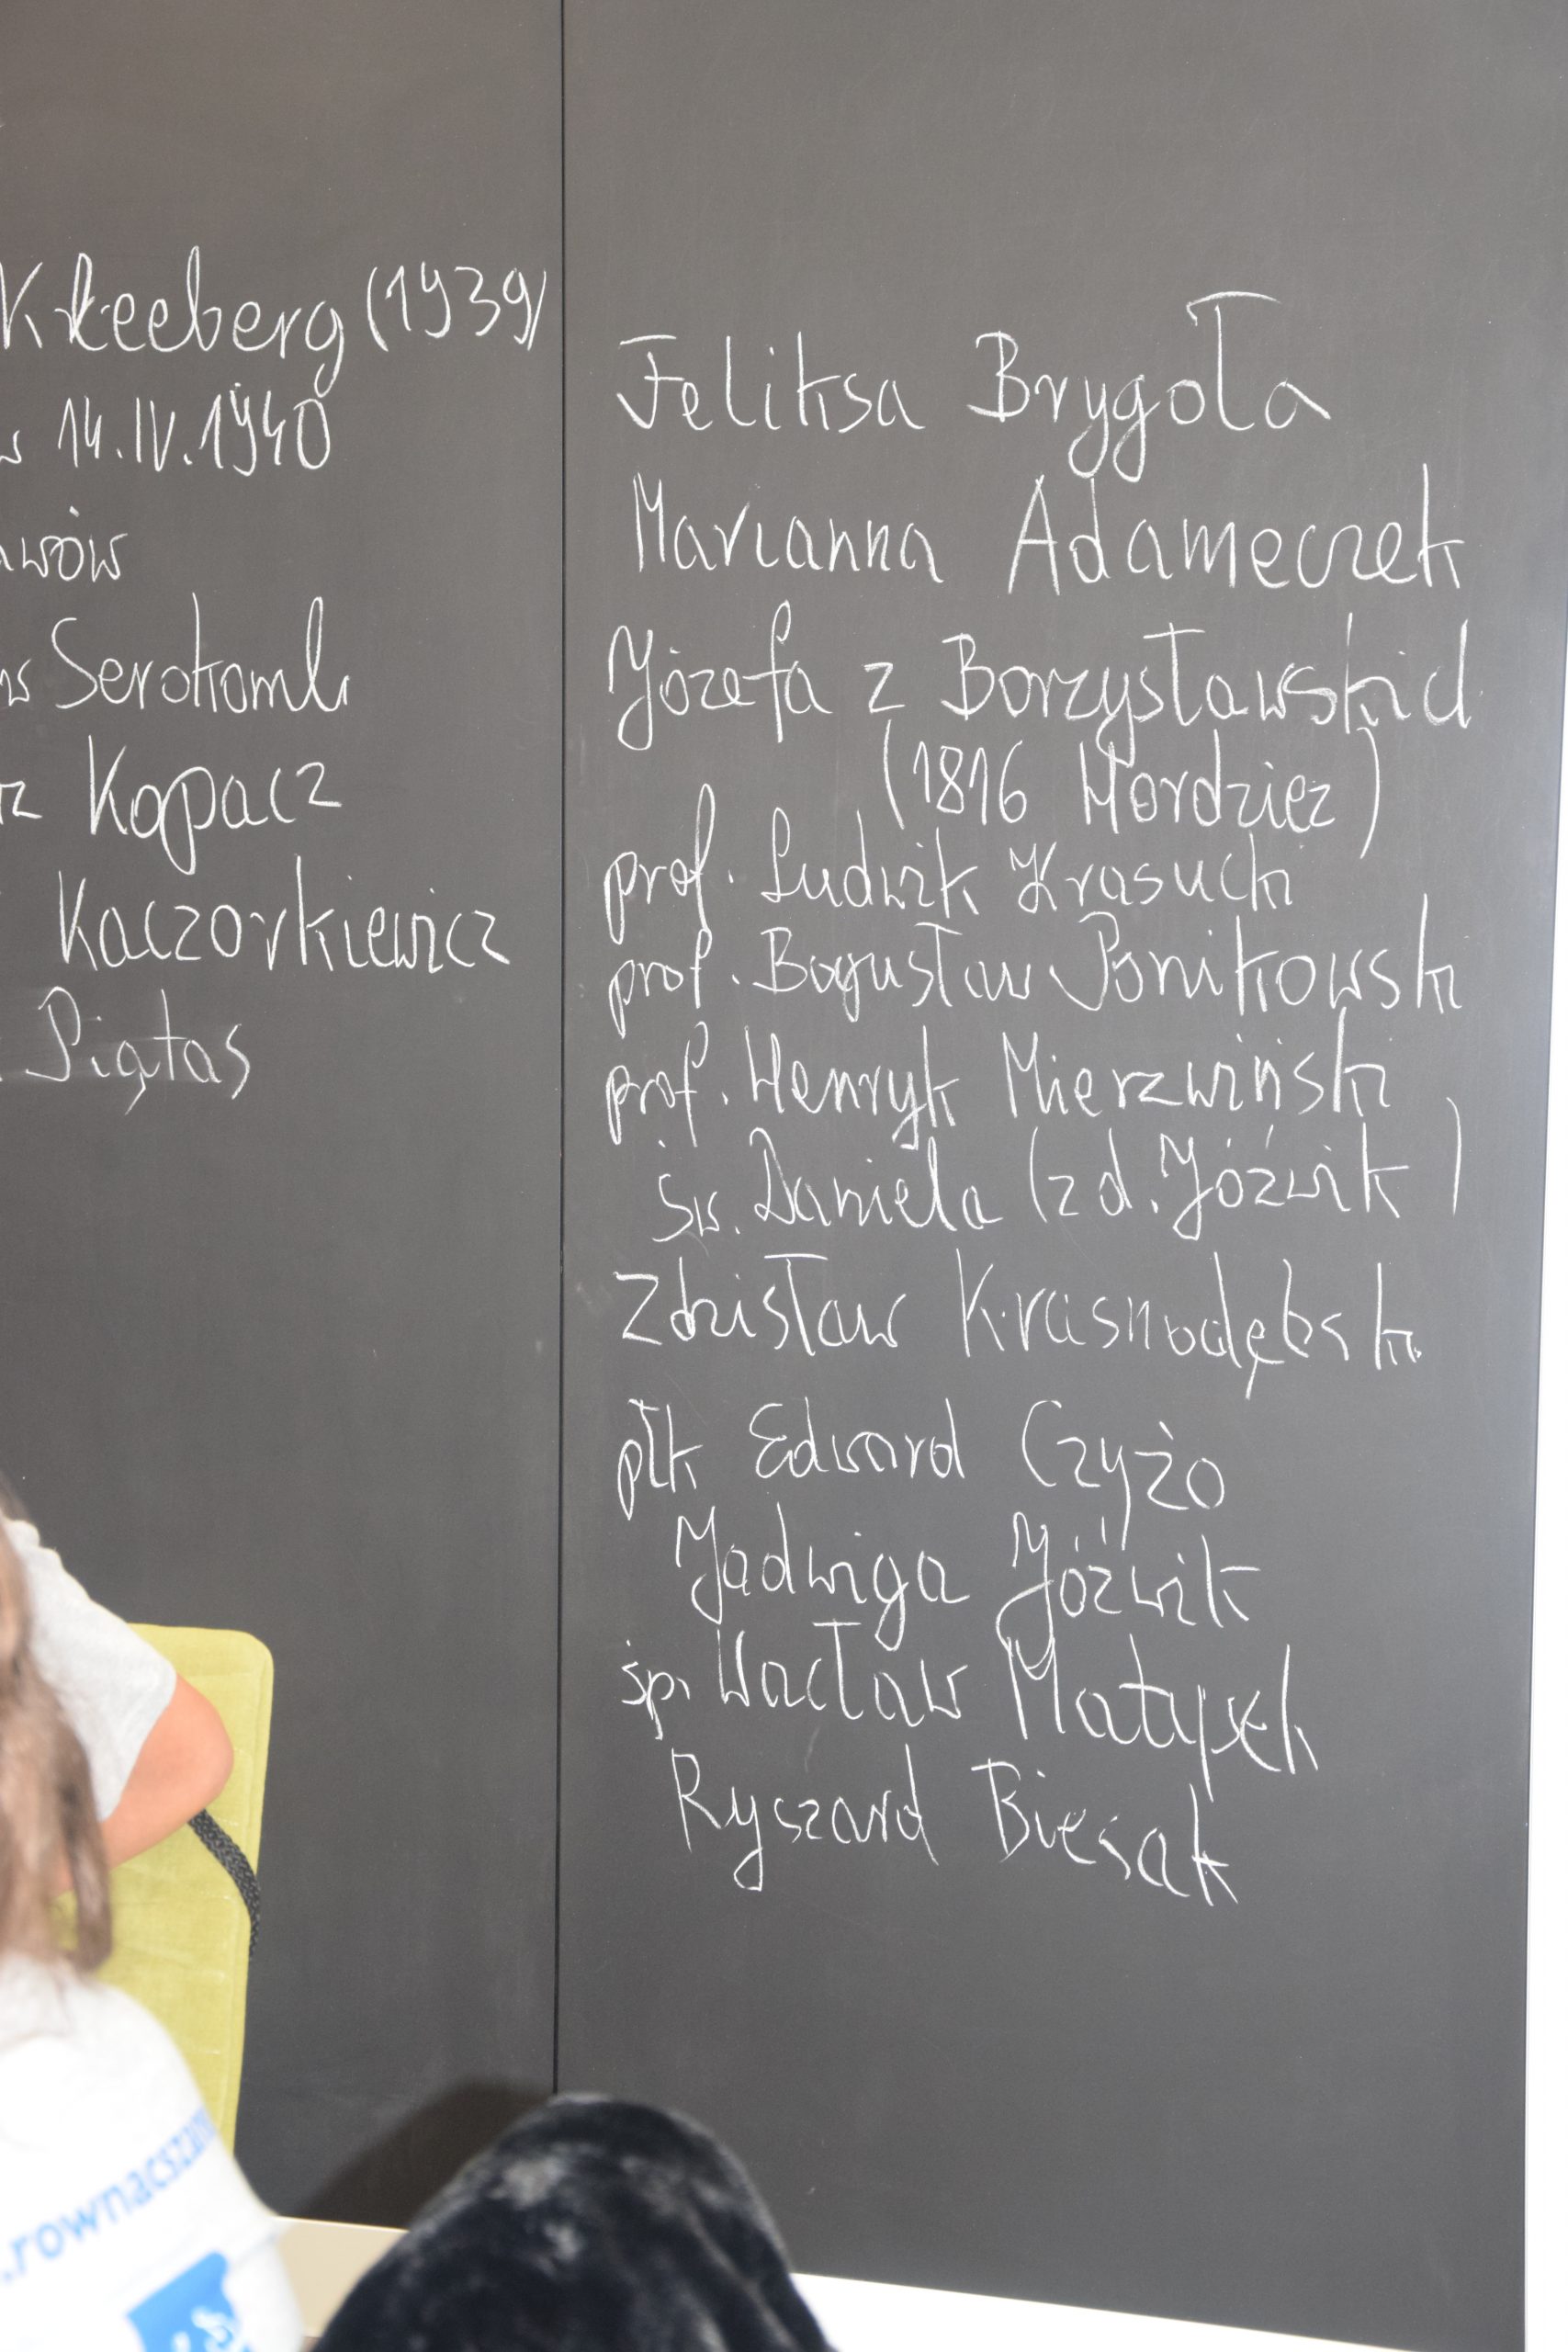 Kleeberg (1939)
w 14.IV.1940
Serokomli
Kopacz
Kaczorkiewicz
Piątas
Feliksa Brygoła
Marianna Adameczek
Józefa z Borzysławskich
(1816 Hordzież)
prof. Ludwik Krasucki
prof. Bogusław Ponikowski
prof. Henryk Mierzwiński
św. Daniela (zd. Jóźwik)
Zdzisław Krasnodębski
płk Edward Czyżo
Jadwiga Jóźwik
śp. Wacław Matysek
Ryszard Biesak